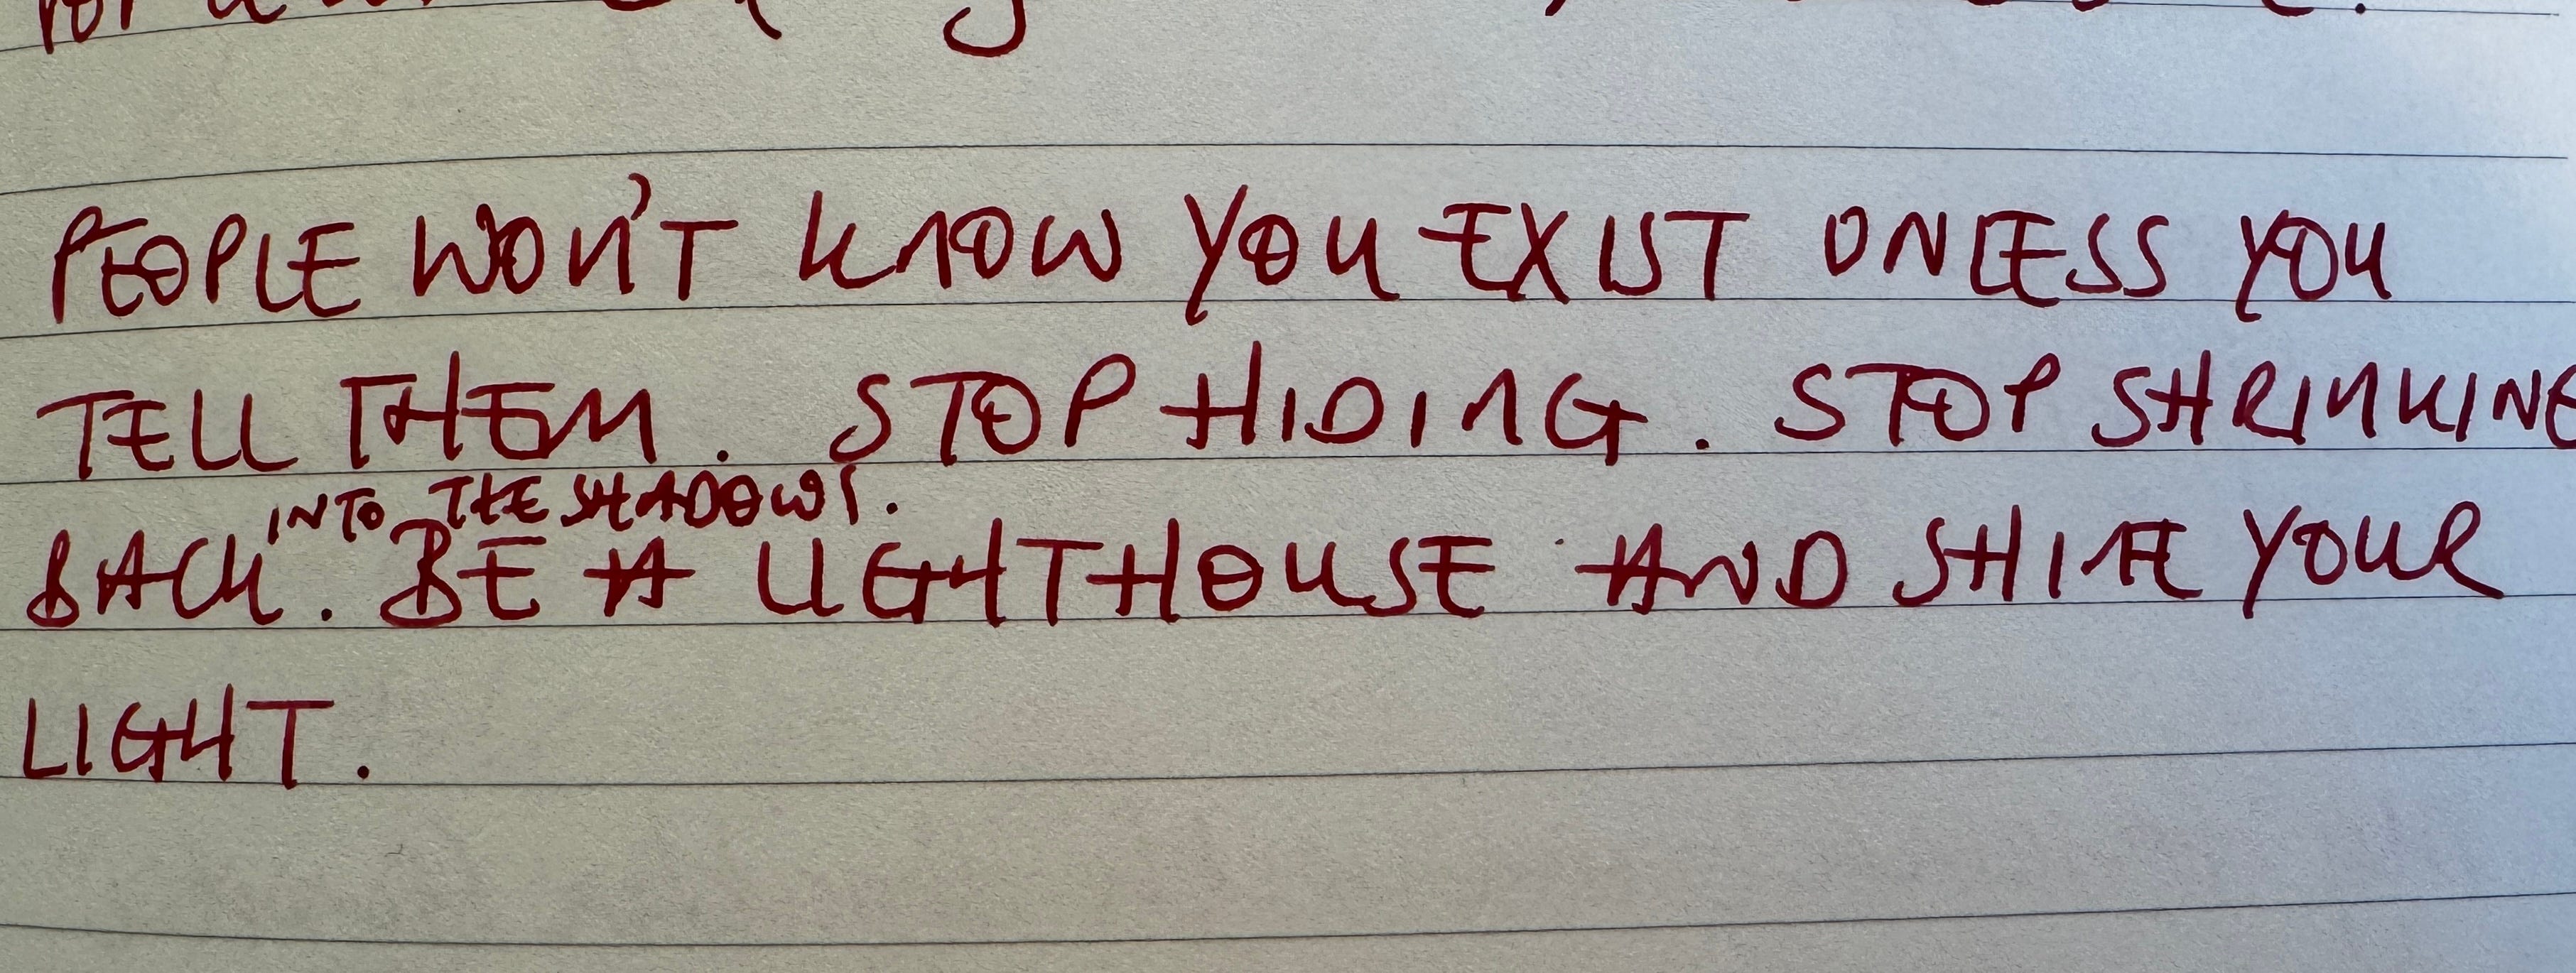 PEOPLE WON'T KNOW YOU EXIST UNLESS YOU
TELL THEM. STOP HIDING. STOP SHRINKING
INTO THE SHADOWS.
BACK. BE A LIGHTHOUSE AND SHINE YOUR
LIGHT.